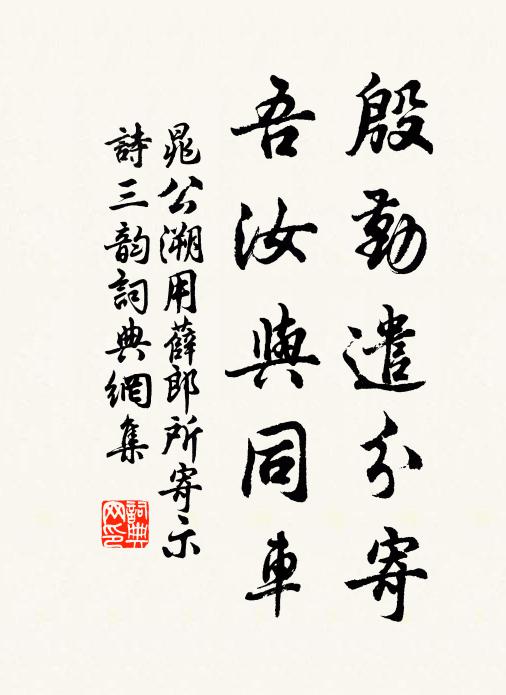 殷勤遣分寄
吾汝與同車
晁公溯用薛郎所寄示
詩三韵詞典網集
詞典網印